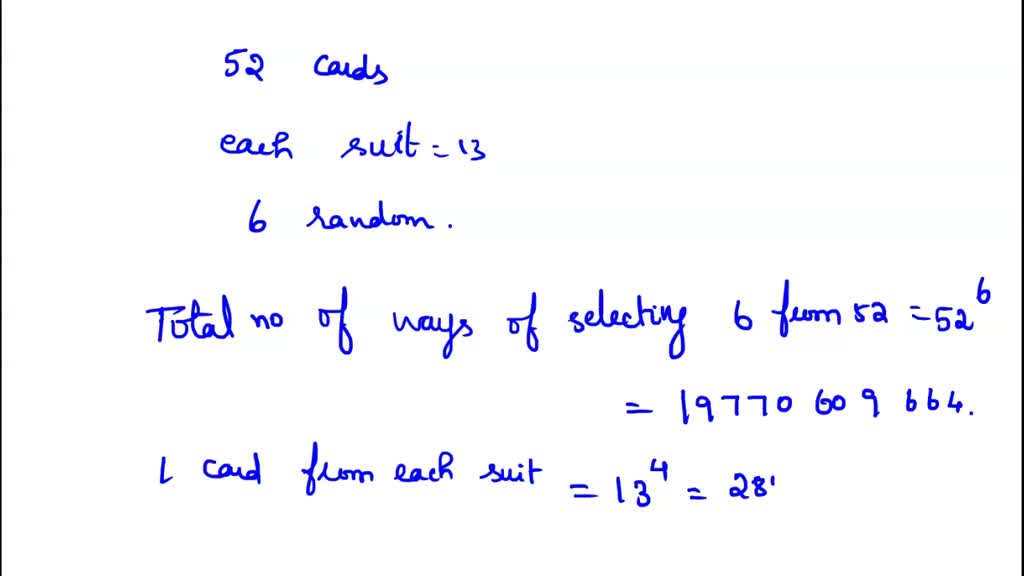 52 cards
each suit = 13
6 random.
Total no of ways of selecting 6 from 52 = 52^6
= 19770 609 664.
1 card from each suit = 13^4 = 28